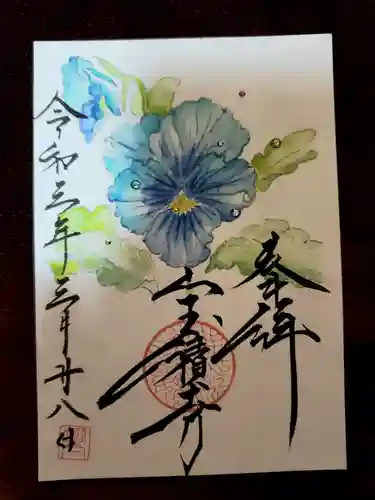 奉拝
宝積寺
令和三年三月廿八日